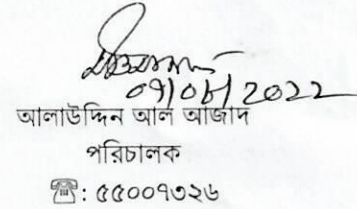 ০৭/০৮/2022
আলাউদ্দিন আল আজাদ
পরিচালক
☎: ৫৫০০৭৩২৬